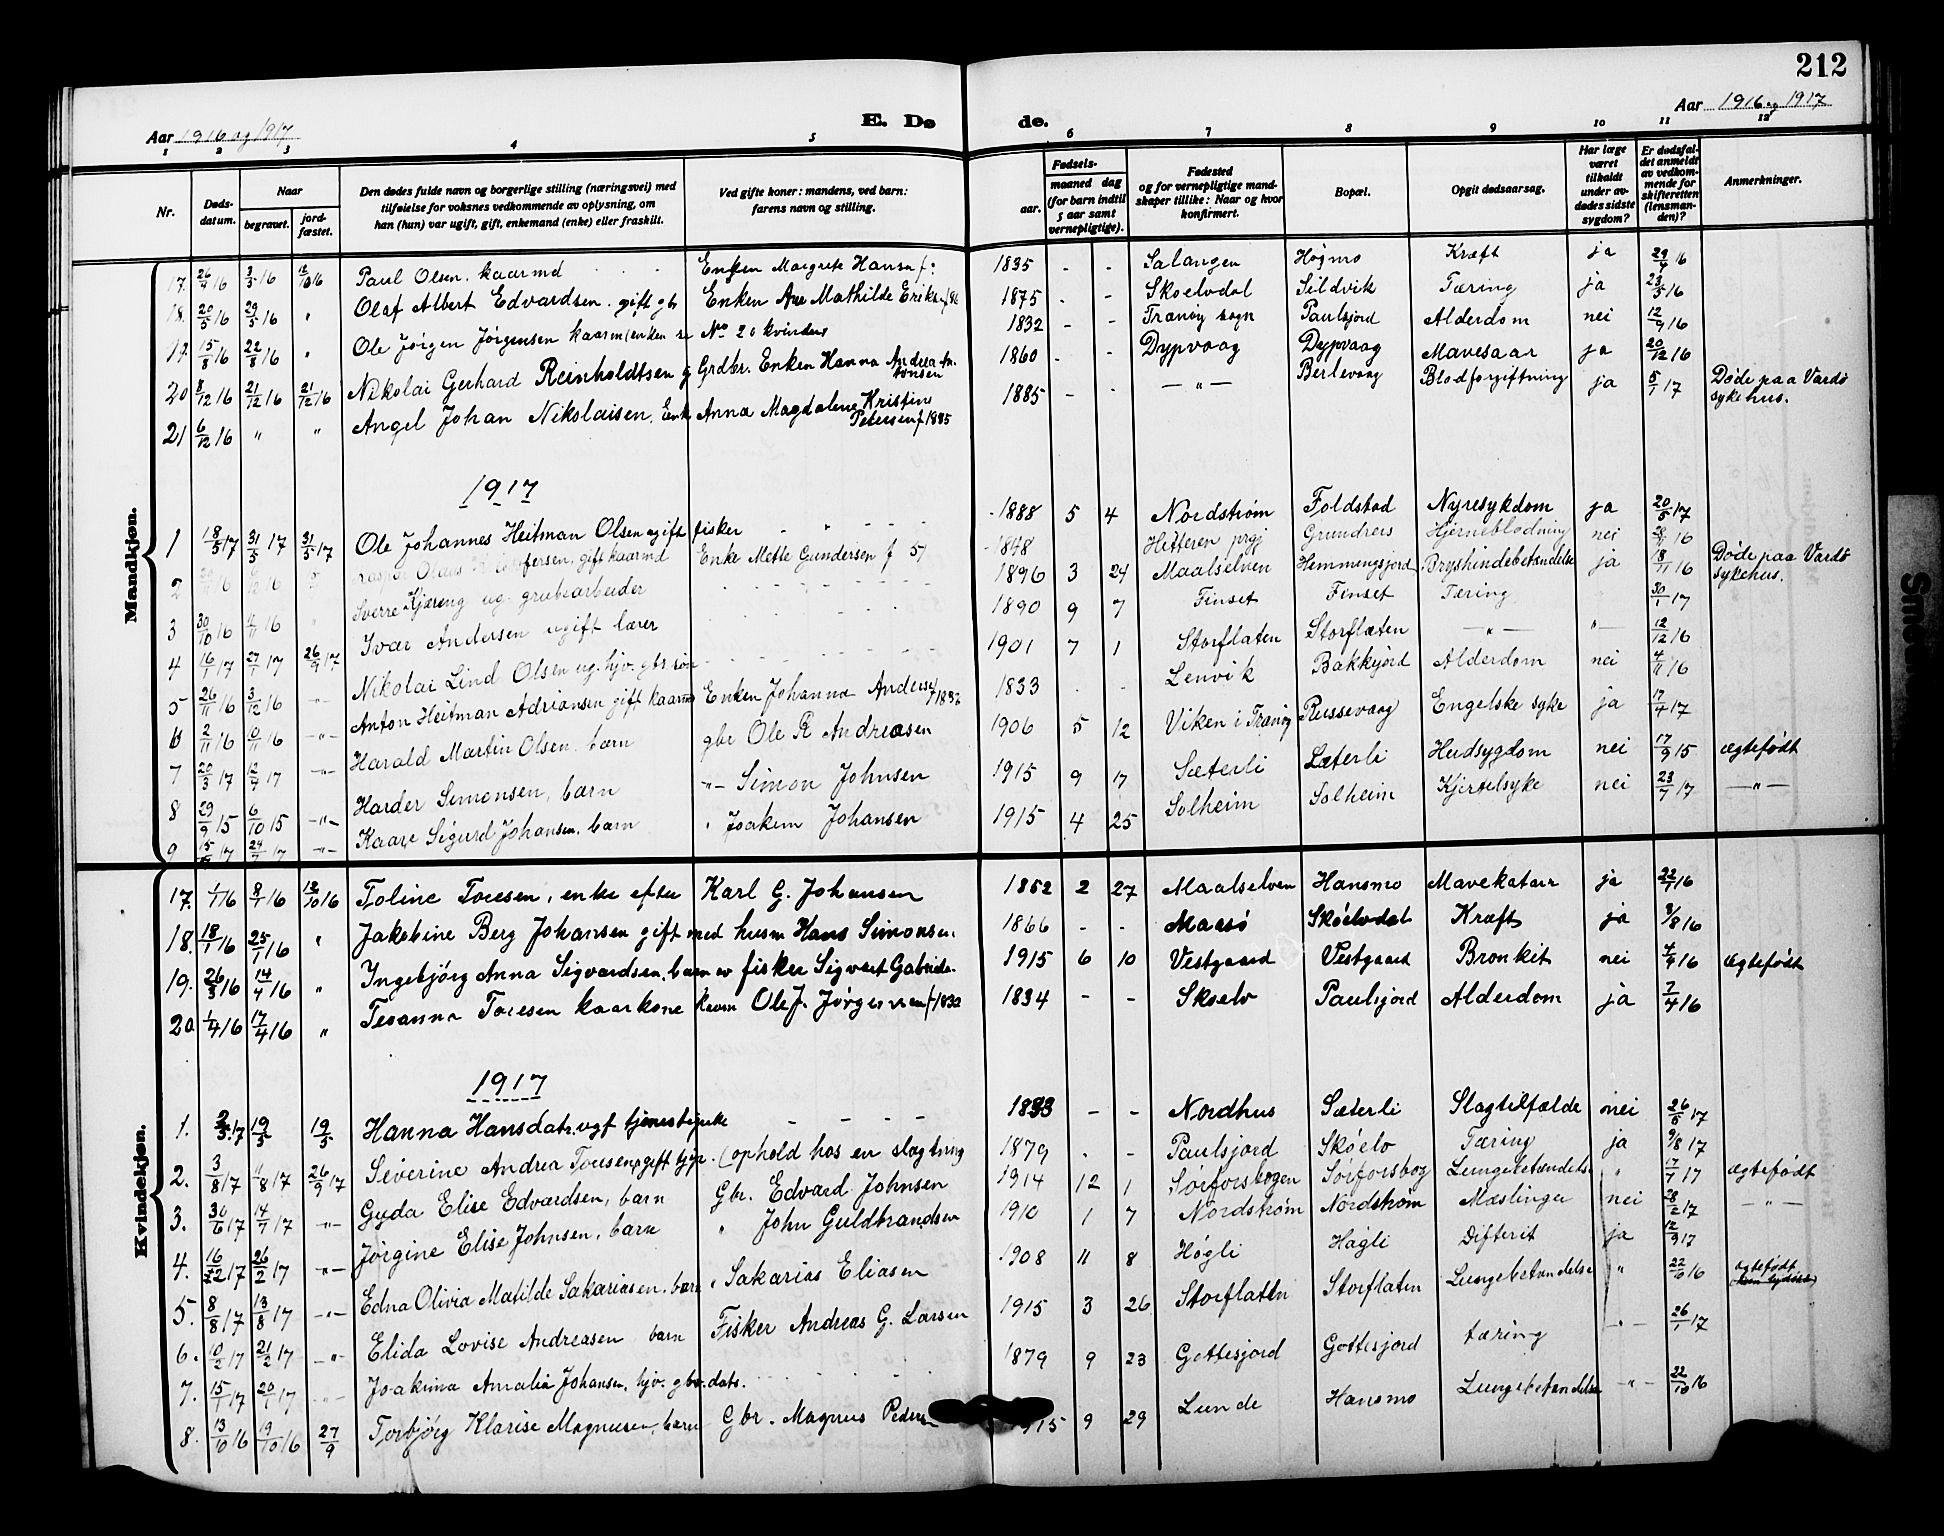 212
Aar 1916 og 1917
E. Dø
de.
Aar 1916 og 1917
1 2 3 4 5 6 7 8 9 10 11 12
Nr.
Døds-datum.
Naar
begravet.
jord-fæstet.
Den dødes fulde navn og borgerlige stilling (næringsvei) med tilføielse for voksnes vedkommende av oplysning, om han (hun) var ugift, gift, enkemand (enke) eller fraskilt.
Ved gifte koner: mandens, ved barn: farens navn og stilling.
Fødsels-
aar.
maaned dag (for barn indtil 5 aar samt vernepligtige).
Fødested og for vernepligtige mandskaper tillike: Naar og hvor konfirmert.
Bopæl.
Opgit dødsaarsag.
Har læge været tilkaldt under av-dødes sidste sygdom?
Er dødsfal-det anmeldt av vedkom-mende for skifteretten (lensman-den)?
Anmerkninger.
Mandkjøn.
17. 26/4 16 3/5 16 12/10 16 Paul Olsen, kaarmd Enken Margrete Hansen f: 1835 - - Salangen Høgmo Kræft ja 29/4 16
18. 20/5 16 29/5 16 " Olaf Albert Edvardsen. gift gbr Enken Ane Mathilde 1875 - - Skoelvdal Sildvik Tæring ja 23/5 16
19. 15/8 16 22/8 16 " Ole Jørgen Jørgensen kaarm (enken se No 20 kvinders 1832 - - Tranøy sogn Paulsjord Alderdom nei 12/9 16
20 8/12 16 21/12 16 21/12 16 Nikolai Gerhard Reinholdtsen g Grdbr. Enken Hanna Andrea Antonsen 1860 - - Dypvaag Dypvaag Mavesaar ja 20/12 16
21 6/12 16 " " Angel Johan Nikolaisen. Enk Anna Magdalene Kristine Petersen f 1885 1885 - - — " — Berlevaag Blodforgiftning ja 5/1 17 Døde paa Vardö sykehus.
1917
1 18/5 17 31/5 17 31/5 17 Ole Johannes Heitman Olsen ugift fisker 1888 5 4 Nordstrøm Foldstad Nyresykdom ja 20/5 17
2 Olaus gift kaarmd Enke Mette Gundersen f 51 1848 Hitteren prgj Grundnes Hjerneblødning nei 28/11 16
3 30/10 16 4/11 16 " Sverre Kjæreng ug. grubearbeider 1896 3 24 Maalselven Hemmingsjord Bryshindebetændelse ja 18/11 16 Døde paa Vardö sykehus.
4 16/1 17 27/1 17 26/9 17 Ivar Andersen ugift lærer 1890 9 7 Finset Finset Tæring 30/1 17
5 26/11 16 3/12 16 -"- Nikolai Lind Olsen ug. hjv. gbr søn 1901 7 1 Storflaten Storflaten — " — " — 12/12 16
6 2/11 16 10/11 16 -"- Anton Heitman Adriansen gift kaarmd Enken Johanna Anders f 1836 1833 - - Lenvik Bakkejord Alderdom nei 4/11 16
7 20/3 17 12/4 17 -"- Harald Martin Olsen. barn gbr Ole R Andreasen 1906 5 12 Viken i Tranøy Russevaag Engelske syke ja 17/4 17
8 29/9 15 6/10 15 -"- Harder Simonsen, barn -"- Simon Johnsen 1915 9 17 Sæterli Sæterli Hudsygdom nei 17/9 15 ægtefødt
9 15/7 17 24/7 17 -"- Kaare Sigurd Johansen, barn " Joakim Johansen 1915 4 25 Solheim Solheim Kjertelsyke nei 23/7 17 — " —
Kvindekjøn.
17. 1/1 16 8/1 16 12/10 16 Toline Toresen, enke efter Karl G. Johansen 1852 2 27 Maalselven Hansmo Mavekatarr ja 22/1 16
18. 18/1 16 25/1 16 " Jakobine Berg Johansen gift med husm Hans Simonsen. 1866 - - Maasø Skøelvdal Kræft ja 8/8 16
19. 26/3 16 14/4 16 " Ingebjørg Anna Sigvardsen, barn av fisker Sigvart Gabriels. 1915 6 10 Vestgaard Vestgaard Bronkit nei 4/4 16 ægtefødt
20 1/4 16 17/4 16 " Tesanna Toresen kaarkone Kaarm Ole J. Jørgensen f 1832 1834 - - Skoelv Paulsjord Alderdom ja 7/4 16
1917
1. 2/5 17 19/5 19/5 Hanna Hansdatr. ugf tjenestepike 1833 - - Nordhus Sæterli Slagtilfælde nei 26/5 17
2. 3/8 17 "/8 17 26/9 17 Severine Andrea Toresen ugift tjp. (ophold hos en slægtning 1879 - - Paulsjord Skøelv Tæring ja 9/8 17
3. 30/6 17 14/7 17 -"- Gyda Elise Edvardsen, barn Gbr. Edvard Johnsen 1914 12 1 Sørforsbogen Sørforsbog Lungebetændelse " 17/7 17 ægtefødt
4. 16/2 17 26/2 17 -"- Jørgine Elise Johnsen, barn " John Guldbrandsen 1910 1 7 Nordstrøm Nordstrøm Mæslinger nei 28/2 17 — " —
5. 8/8 17 13/8 17 -"- Edna Olivia Matilde Sakariassen. barn " Sakarias Eliasen 1908 11 8 Høgli Høgli Difterit ja 12/9 17
6. 10/2 17 21/2 17 -"- Elida Lovise Andreasen barn Fisker Andreas G. Larsen 1915 3 26 Storflaten Storflaten Lungebetændelse " 22/10 16 ægtefødt
7. 15/1 17 20/1 17 -"- Joakima Amalia Johansen, hjv. gbr. datr. 1879 9 23 Gottesjord Gottesjord tæring -"- 26/1 17
8. 13/10 16 19/10 16 27/9 Torbjørg Klarise Magnusen, barn Gbr. Magnus Peders 1915 9 29 Lunde Hansmo Lungebetændelse -"- 22/10 16